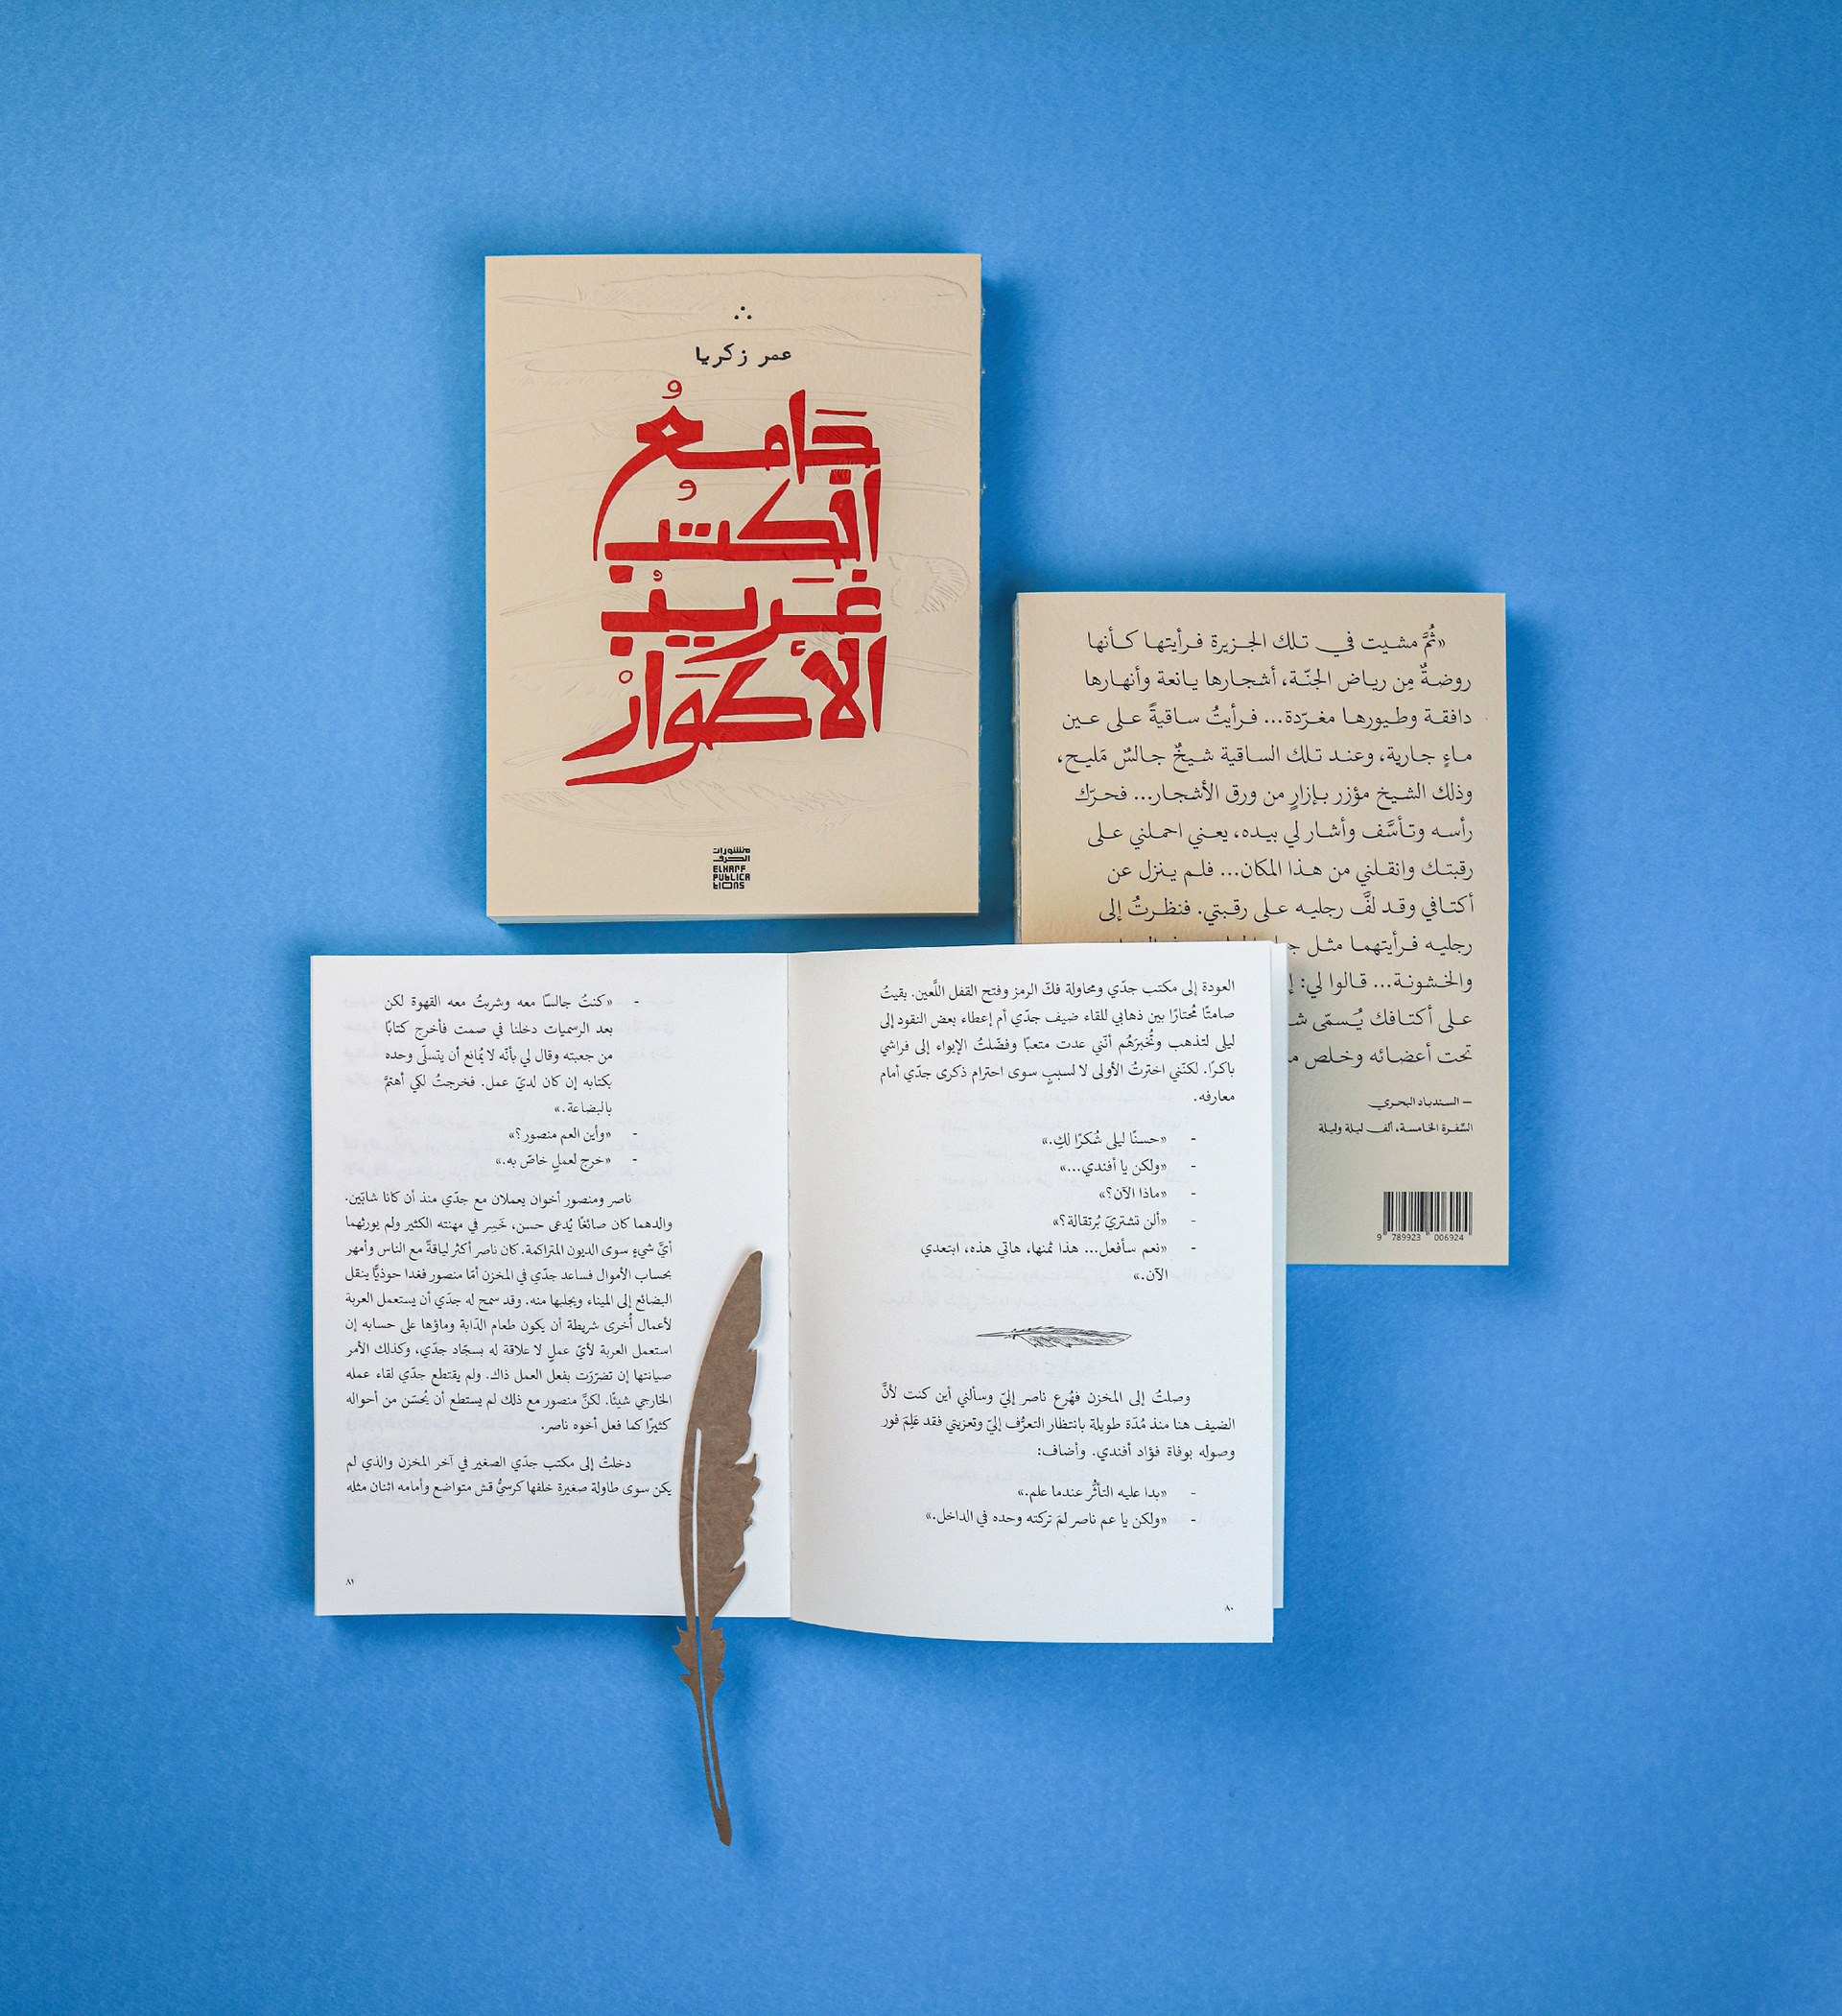 عمر زكريا
دَامغُ
الكتبُ
غَريبُ
الأكوَارْ
منشورات
الحرف
ELHARF
PUBLICA
tIONS
«ثُمَّ مشيت في تلك الجزيرة فرأيتها كأنها
روضةٌ مِن رياض الجنّة، أشجارها يانعة وأنهارها
دافقة وطيورها مغرّدة... فرأيتُ ساقيةً على عين
ماءٍ جارية، وعند تلك الساقية شيخٌ جالسٌ مَليح،
وذلك الشيخ مؤزر بإزارٍ من ورق الأشجار... فحرّك
رأسه وتأسَّف وأشار لي بيده، يعني احملني على
رقبتك وانقلني من هذا المكان... فلم ينزل عن
أكتافي وقد لفَّ رجليه على رقبتي. فنظرتُ إلى
رجليه فرأيتهما مثل
والخشونة... قالوا لي:
على أكتافك يُسمّى
تحت أعضائه وخلص
– السندباد البحري
السَّفرة الخامسة، ألف ليلة وليلة
9 789923 006924
العودة إلى مكتب جدّي ومحاولة فكّ الرمز وفتح القفل اللَّعين. بقيتُ
صامتًا مُحتارًا بين ذهابي للقاء ضيف جدّي أم إعطاء بعض النقود إلى
ليلى لتذهب وتُخبرَهُم أنّني عدت متعبًا وفضّلتُ الإيواء إلى فراشي
باكرًا. لكنّني اخترتُ الأولى لا لسببٍ سوى احترام ذكرى جدّي أمام
معارفه.
- «حسنًا ليلى شُكرًا لكِ.»
- «ولكن يا أفندي...»
- «ماذا الآن؟»
- «ألن تشتريَ بُرتقالة؟»
- «نعم سأفعل... هذا ثمنها، هاتي هذه، ابتعدي
الآن.»
وصلتُ إلى المخزن فهُرع ناصر إليّ وسألني أين كنت لأنَّ
الضيف هنا منذ مُدّة طويلة بانتظار التعرُّف إليّ وتعزيتي فقد عَلِمَ فور
وصوله بوفاة فؤاد أفندي. وأضاف:
- «بدا عليه التأثُّر عندما علم.»
- «ولكن يا عم ناصر لمَ تركته وحده في الداخل.»
٨٠
- «كنتُ جالسًا معه وشربتُ معه القهوة لكن
بعد الرسميات دخلنا في صمت فأخرج كتابًا
من جعبته وقال لي بأنّه لا يُمانع أن يتسلّى وحده
بكتابه إن كان لديّ عمل. فخرجتُ لكي أهتمَّ
بالبضاعة.»
- «وأين العم منصور؟»
- «خرج لعملٍ خاصّ به.»
ناصر ومنصور أخوان يعملان مع جدّي منذ أن كانا شابّين.
والدهما كان صائغًا يُدعى حسن، خَسِر في مهنته الكثير ولم يورثهما
أيَّ شيءٍ سوى الديون المتراكمة. كان ناصر أكثر لياقةً مع الناس وأمهر
بحساب الأموال فساعد جدّي في المخزن أمّا منصور فغدا حوذيًّا ينقل
البضائع إلى الميناء ويجلبها منه. وقد سمح له جدّي أن يستعمل العربة
لأعمال أُخرى شريطة أن يكون طعام الدّابة وماؤها على حسابه إن
استعمل العربة لأيّ عملٍ لا علاقة له بسجّاد جدّي، وكذلك الأمر
صيانتها إن تضرّرَت بفعل العمل ذاك. ولم يقتطع جدّي لقاء عمله
الخارجي شيئًا. لكنَّ منصور مع ذلك لم يستطع أن يُحسّن من أحواله
كثيرًا كما فعل أخوه ناصر.
دخلتُ إلى مكتب جدّي الصغير في آخر المخزن والذي لم
يكن سوى طاولة صغيرة خلفها كرسيُّ قش متواضع وأمامه اثنان مثله
٨١